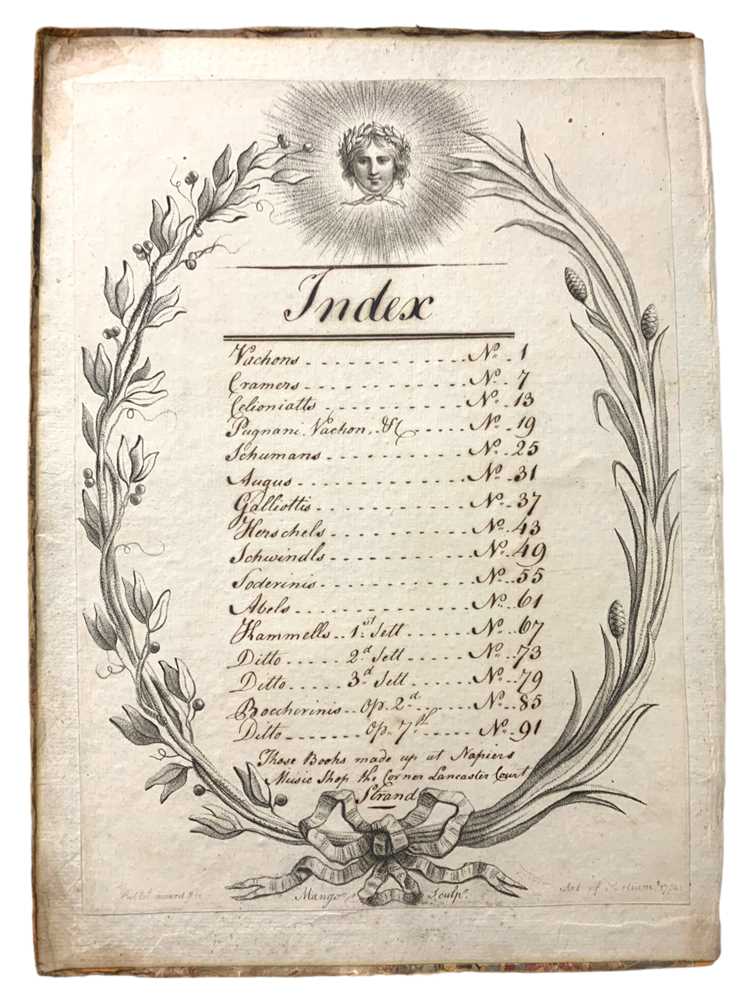 Index
Vachons - - - - - - - - - - - - No. 1
Cramers - - - - - - - - - - - - No. 7
Celioniatts - - - - - - - - - - No. 13
Pugnani, Vachon, &c - - - - No. 19
Schumans - - - - - - - - - - - No. 25
Augus - - - - - - - - - - - - - No. 31
Galliottis - - - - - - - - - - - No. 37
Herschels - - - - - - - - - - - No. 43
Schwindls - - - - - - - - - - - No. 49
Soderinis - - - - - - - - - - - No. 55
Abels - - - - - - - - - - - - - No. 61
Kammells - - 1st. Sett - - - - - No. 67
Ditto - - - - - 2d Sett - - - - - No. 73
Ditto - - - - - 3d Sett - - - - - No. 79
Boccherinis - - Op. 2d - - - - No. 85
Ditto - - - - - - Op. 7th - - - - No. 91
These Books made up at Napiers
Music Shop the Corner Lancaster Court
Strand
Mango Sculpt.
Act of